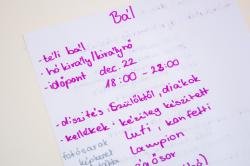 Bál
- téli bál
- hó király/királynő
- időpont dec. 22
18:00 - 23:00
- díszítés: Szülőktől, diákok
- kellékek: kézileg készített
Lufi, konfetti
fotósarok
Lampion
képkeret